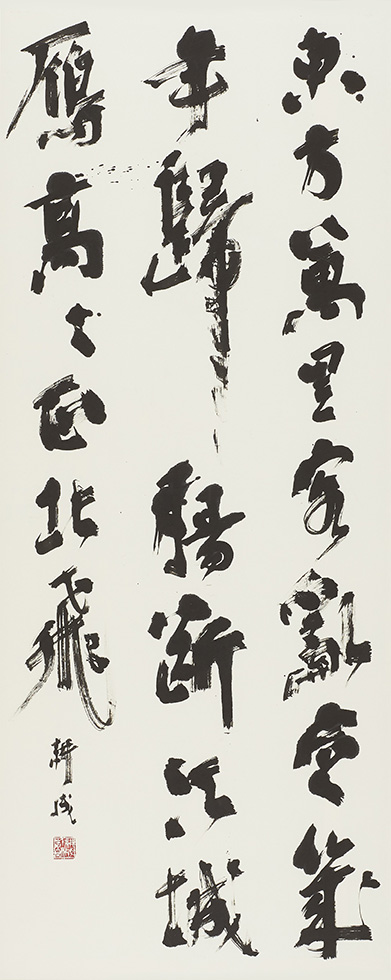 東方萬里客亂定幾
年歸腸斷江城
雁高々正北飛
耕成